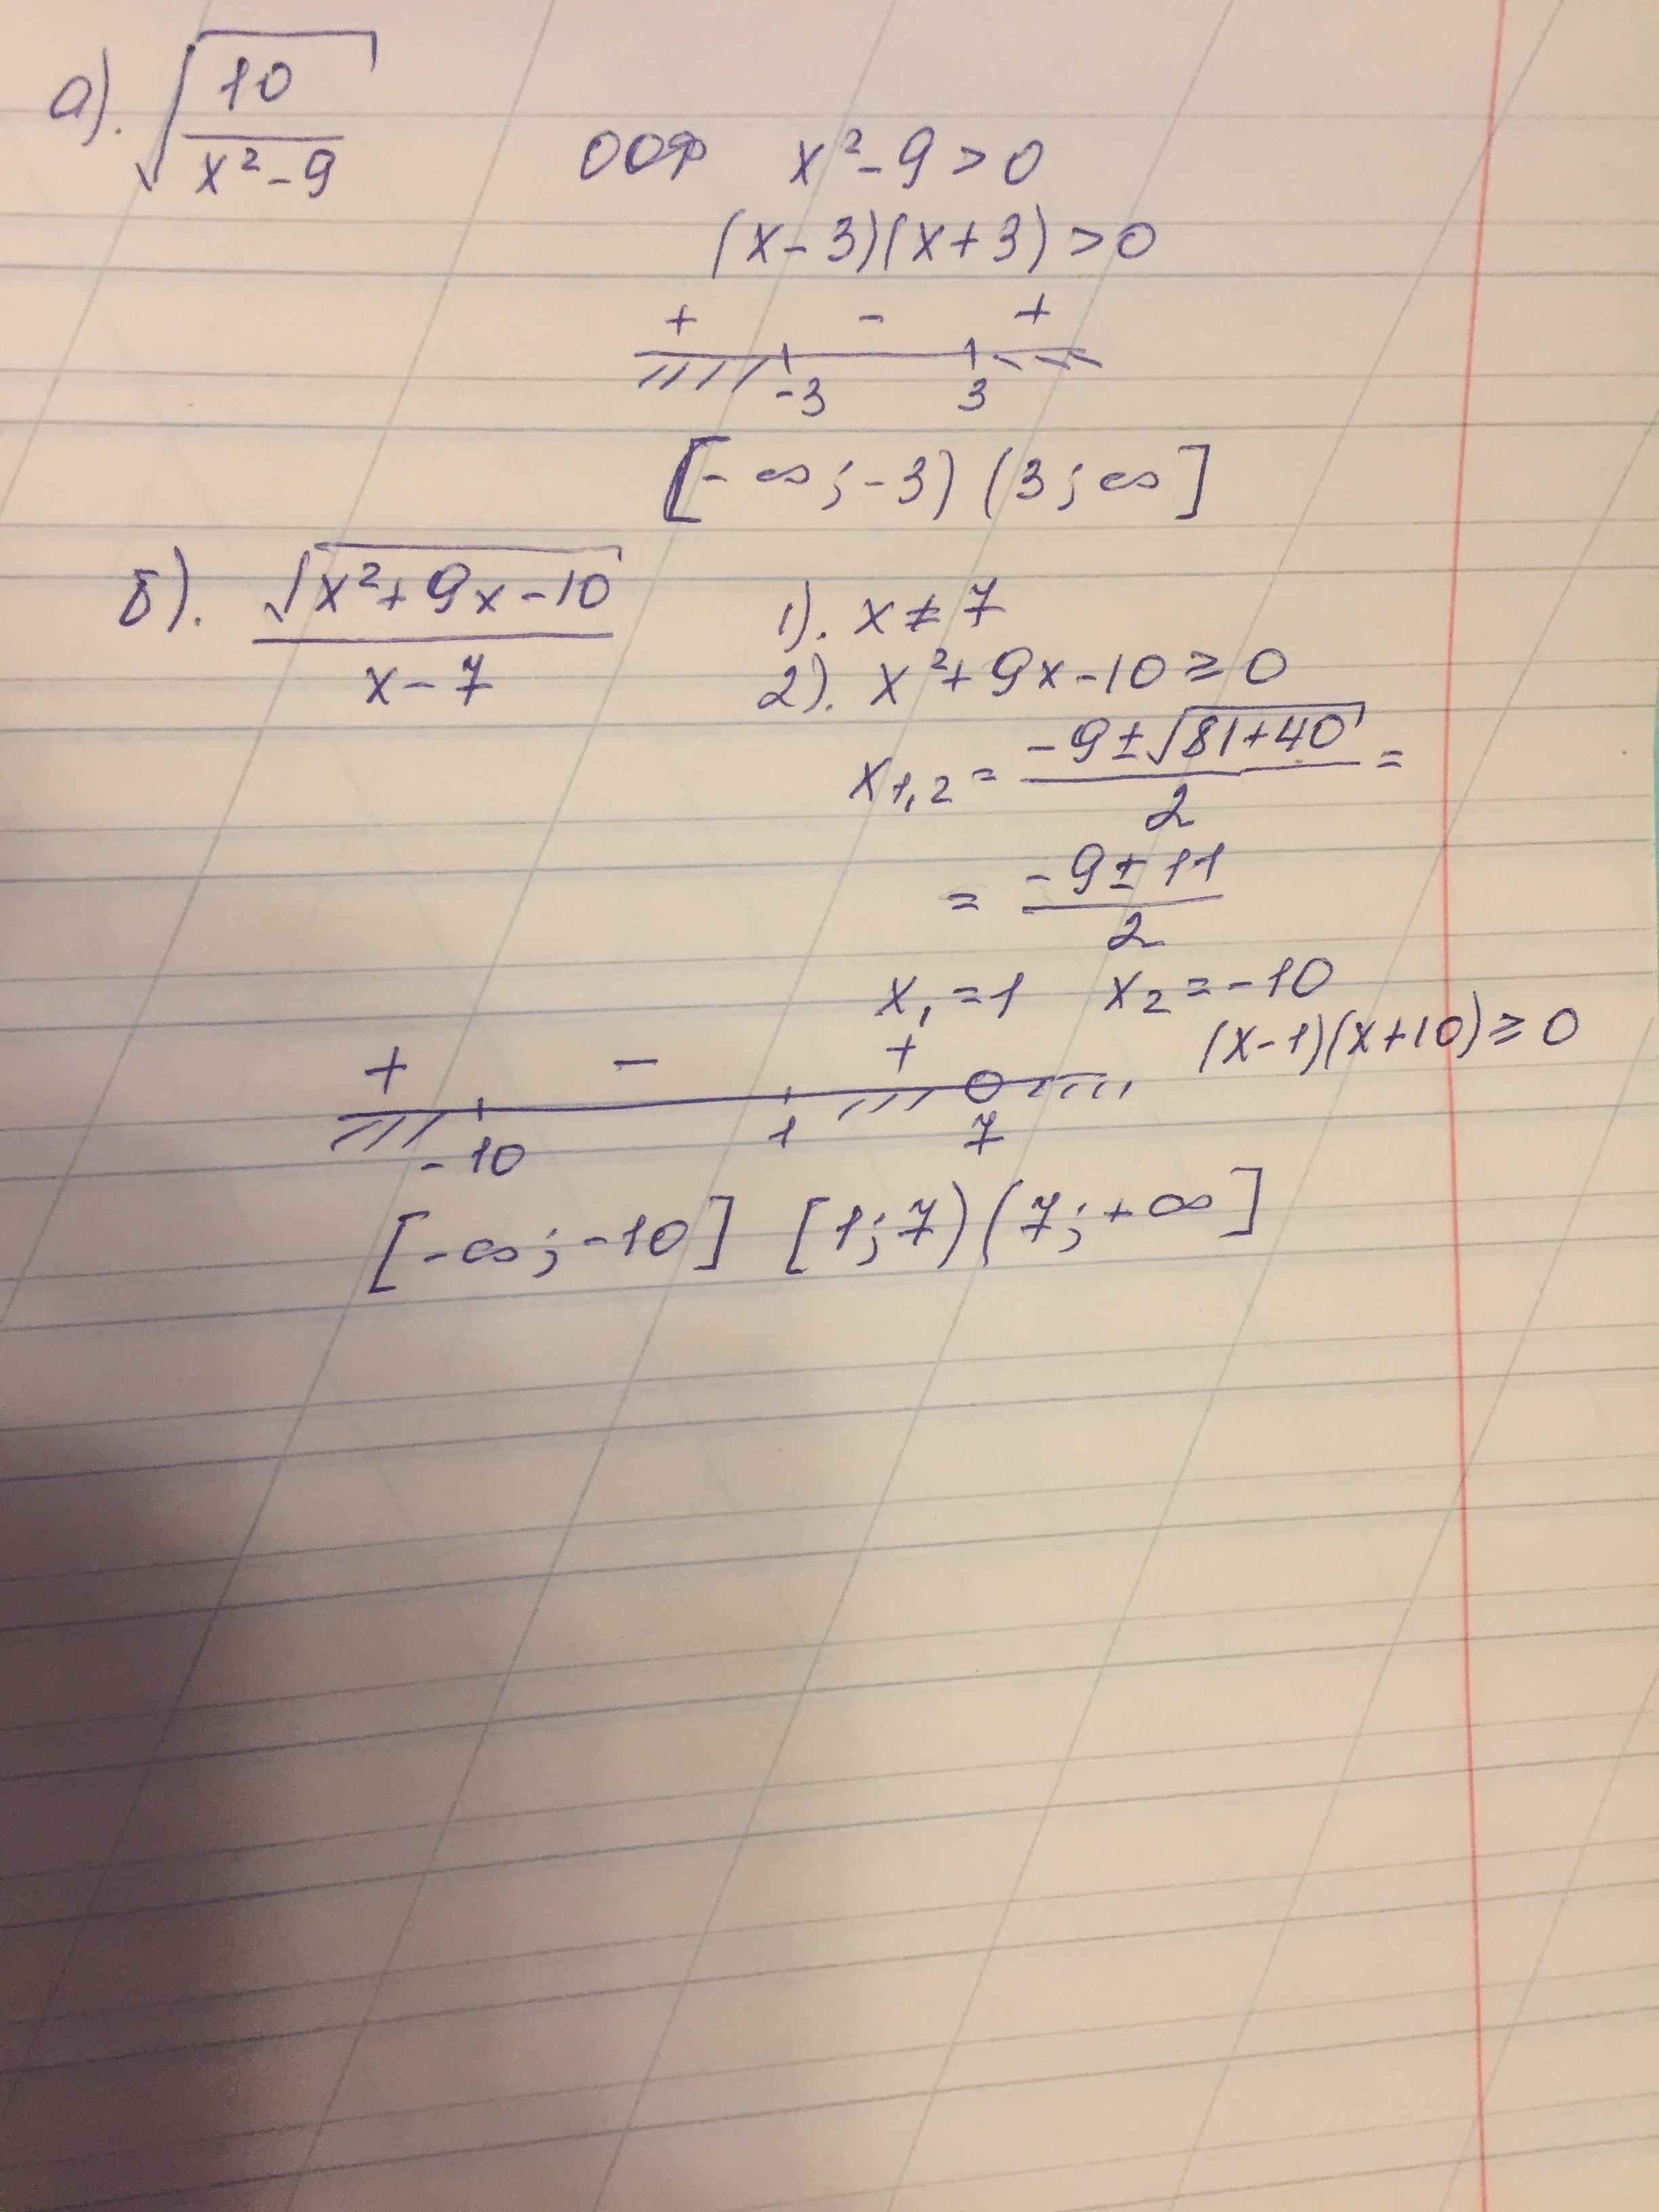 а). √(10/(x² - 9))
ООФ x² - 9 > 0
(x - 3)(x + 3) > 0
+ - +
-3 3
[-∞; -3) (3; ∞]
б). √(x² + 9x - 10)/(x - 7)
1). x ≠ 7
2). x² + 9x - 10 ≥ 0
x₁,₂ = (-9 ± √(81 + 40))/2 =
= (-9 ± 11)/2
x₁ = 1 x₂ = -10
(x - 1)(x + 10) ≥ 0
+ - +
-10 1 7
[-∞; -10] [1; 7) (7; +∞]